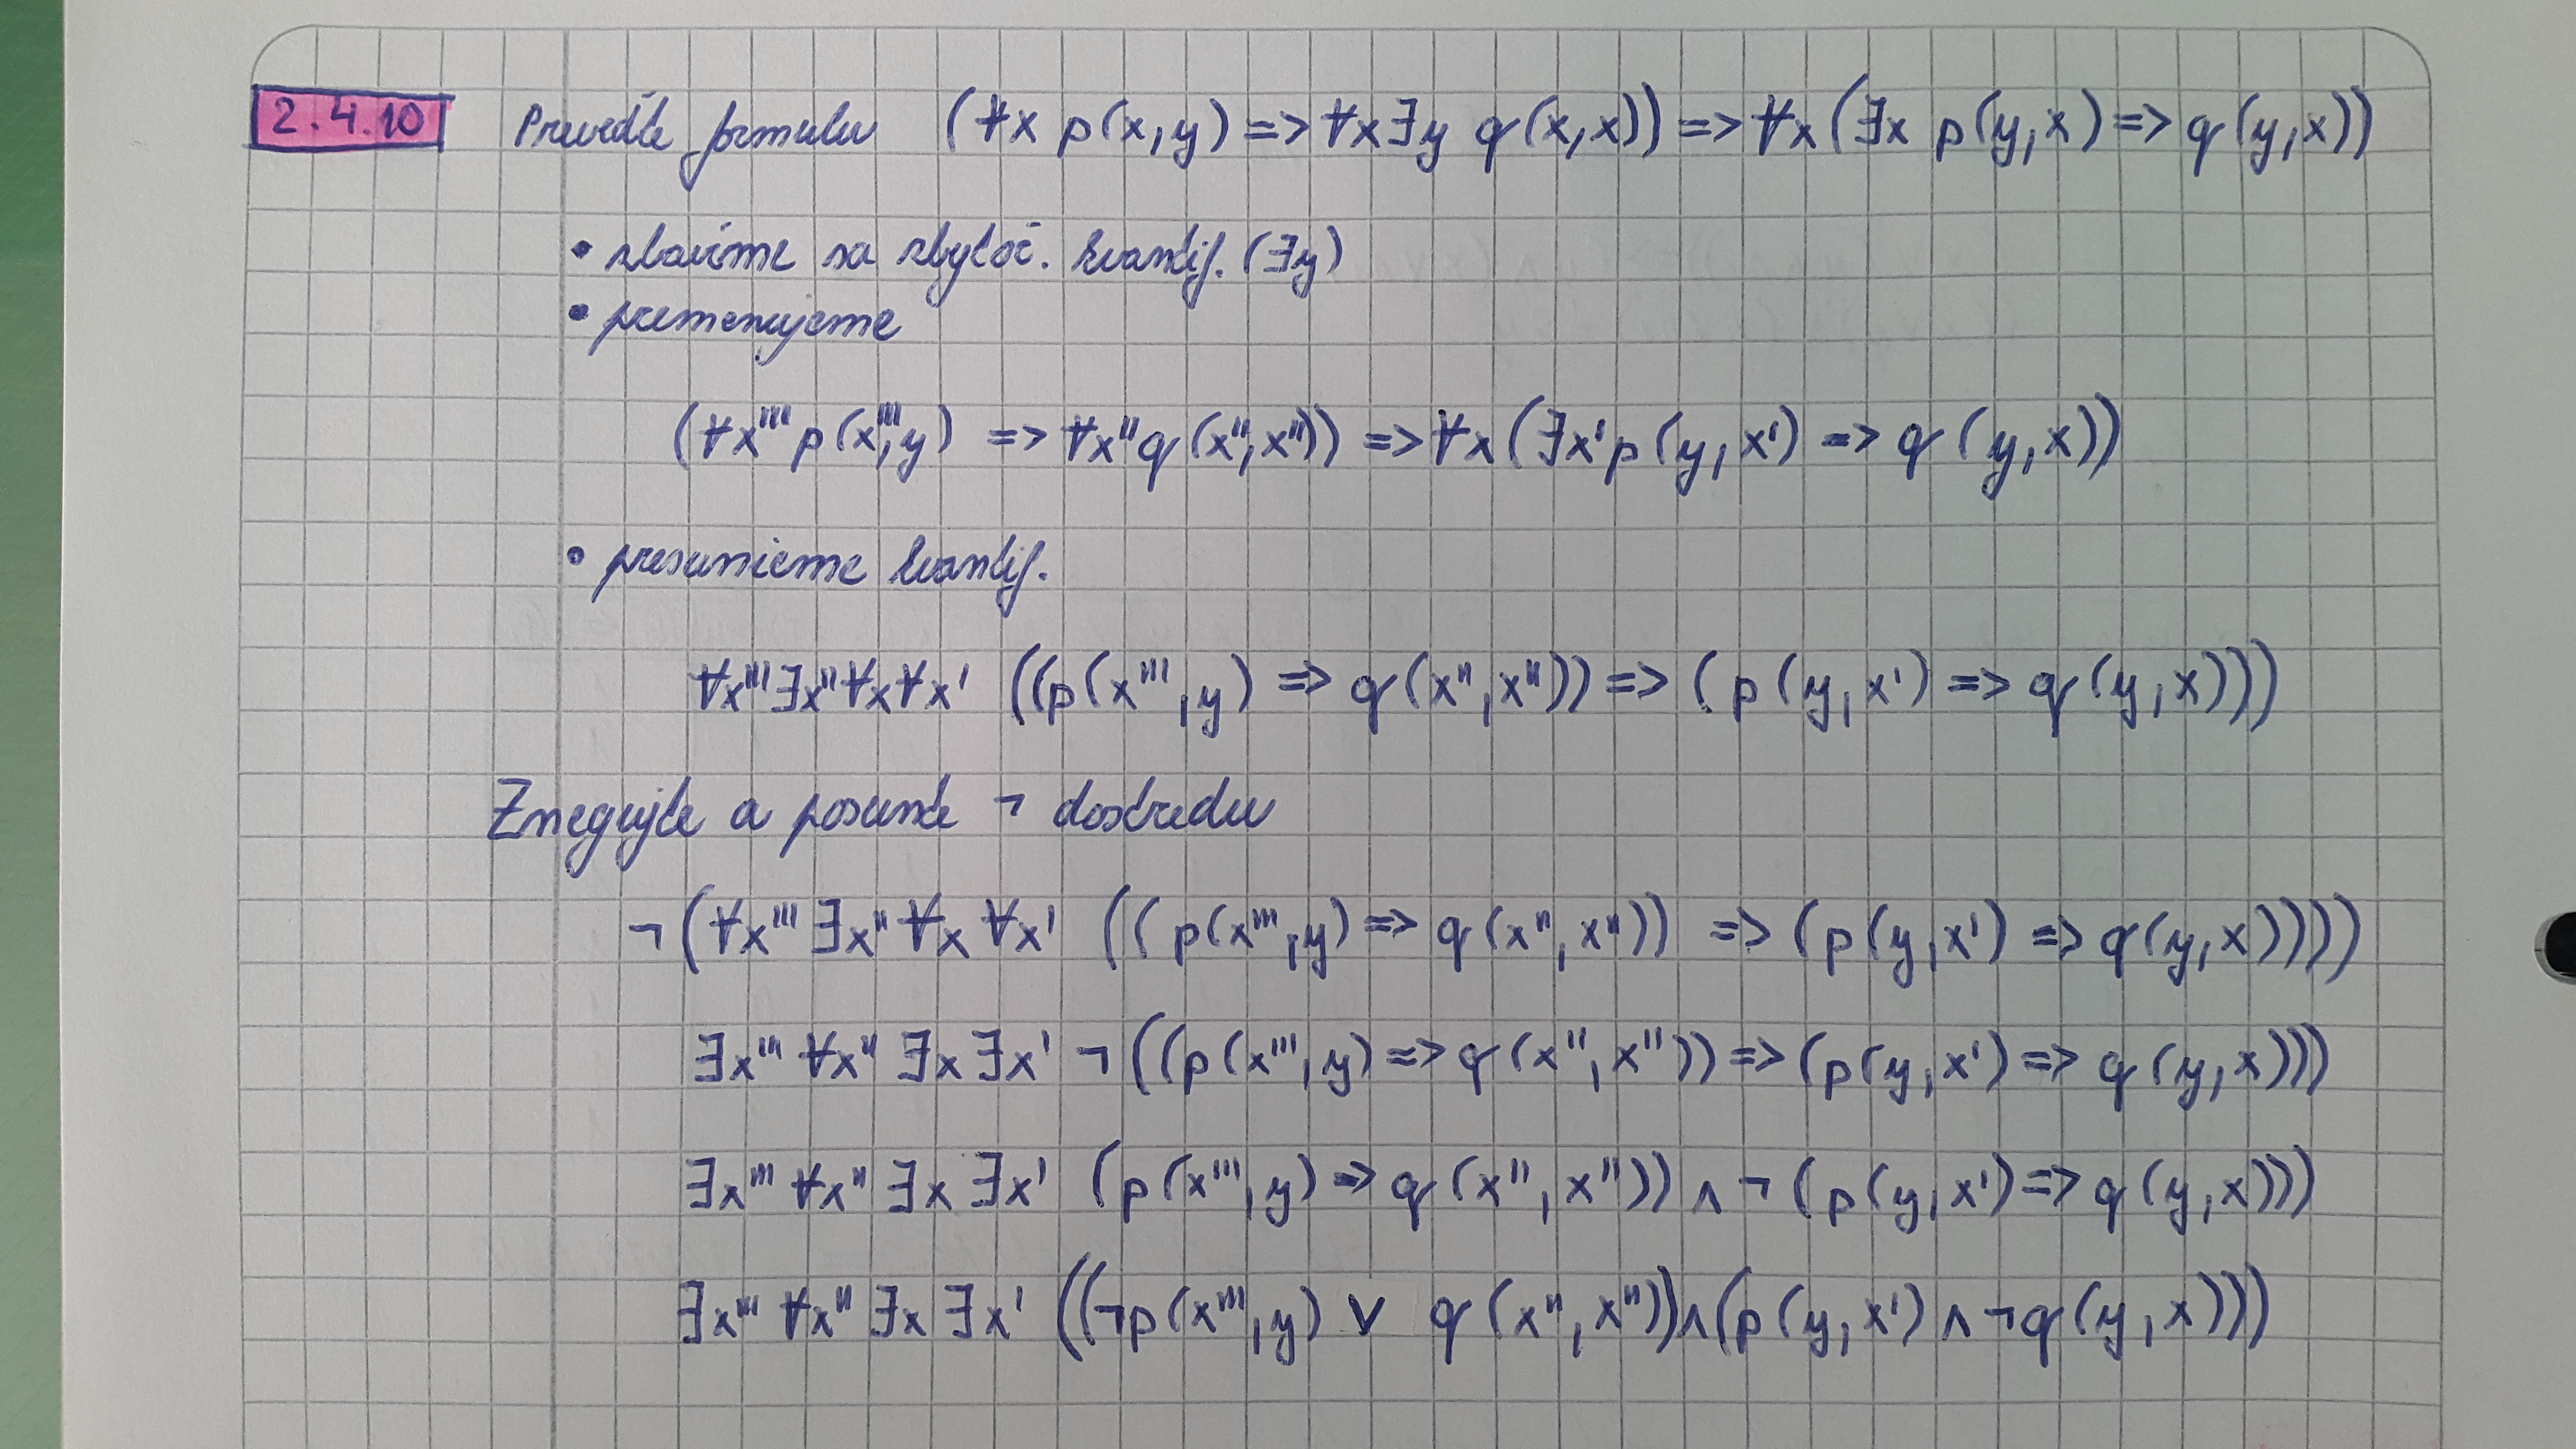 2.4.10 Preveďte formulu (∀x p(x,y) => ∀x∃y q(x,x)) => ∀x(∃x p(y,x) => q(y,x))
• zbavíme sa zbytoč. kvantif. (∃y)
• premenujeme
(∀x''' p(x''',y) => ∀x'' q(x'',x'')) => ∀x(∃x' p(y,x') => q(y,x))
• presunieme kvantif.
∀x''' ∃x'' ∀x ∀x' ((p(x''',y) => q(x'',x'')) => (p(y,x') => q(y,x)))
Znegujte a posuňte ¬ dostredu
¬(∀x''' ∃x'' ∀x ∀x' ((p(x''',y) => q(x'',x'')) => (p(y,x') => q(y,x))))
∃x''' ∀x'' ∃x ∃x' ¬((p(x''',y) => q(x'',x'')) => (p(y,x') => q(y,x)))
∃x''' ∀x'' ∃x ∃x' (p(x''',y) => q(x'',x'')) ∧ ¬(p(y,x') => q(y,x)))
∃x''' ∀x'' ∃x ∃x' ((¬p(x''',y) ∨ q(x'',x''))∧(p(y,x') ∧ ¬q(y,x)))